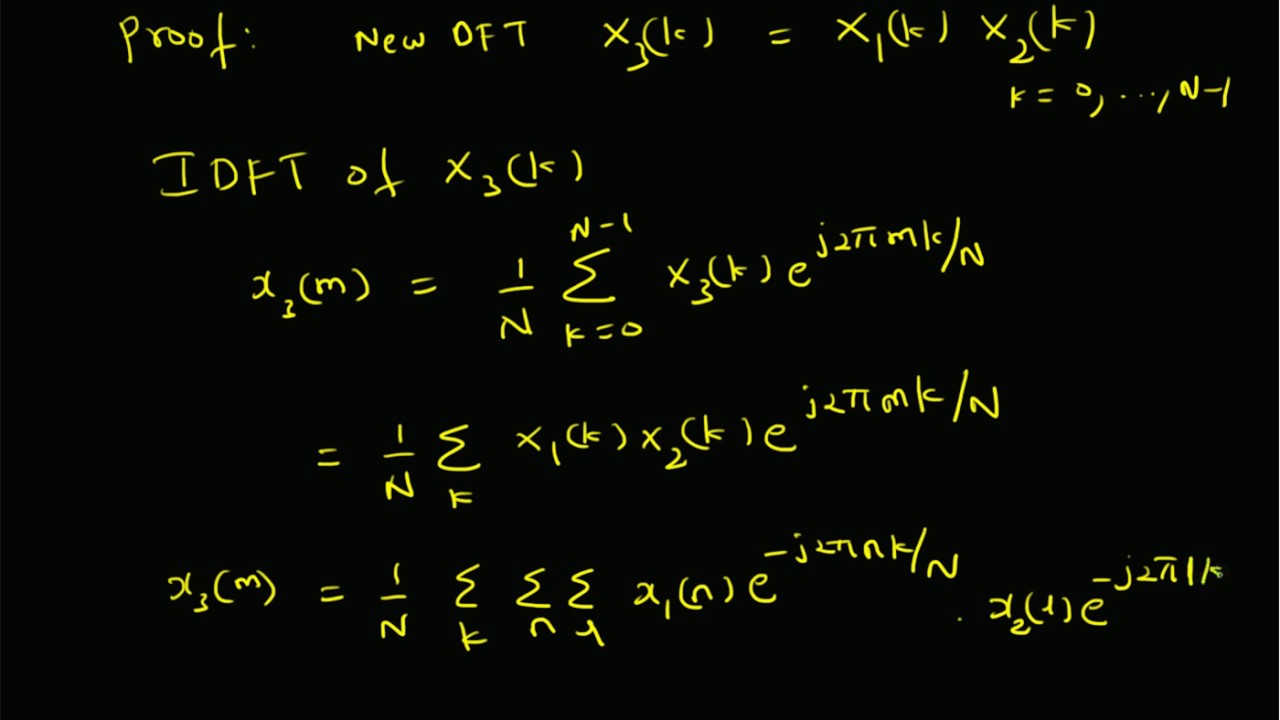 Proof: New DFT X₃(k) = X₁(k) X₂(k)
k = 0, ..., N-1
IDFT of X₃(k)
x₃(m) = 1/N ∑_{k=0}^{N-1} X₃(k) e^{j2πmk/N}
= 1/N ∑_k X₁(k) X₂(k) e^{j2πmk/N}
x₃(m) = 1/N ∑_k ∑_n ∑_l x₁(n) e^{-j2πnk/N} . x₂(l) e^{-j2πlk